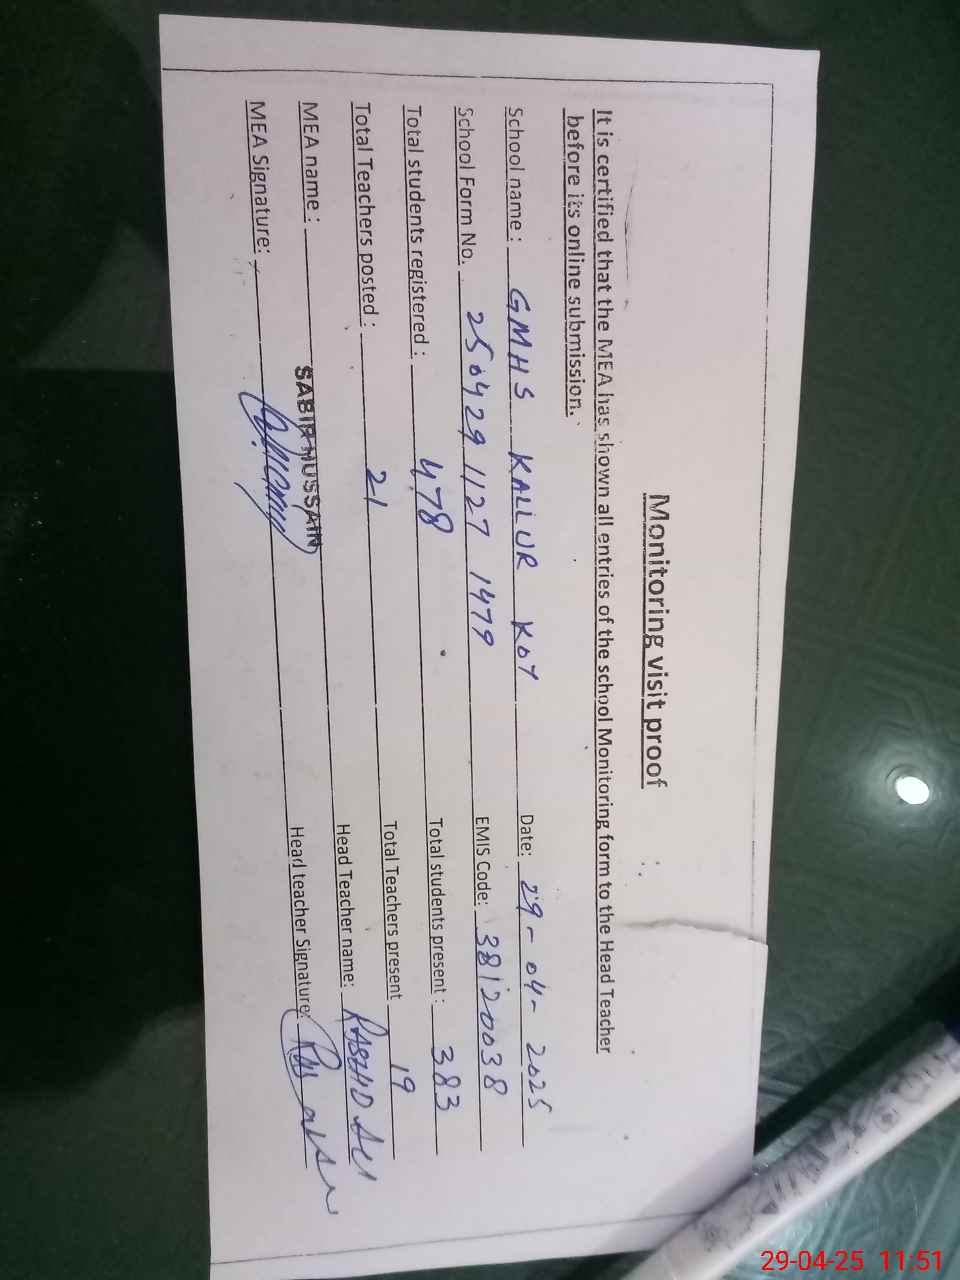 Monitoring visit proof
It is certified that the MEA has shown all entries of the school Monitoring form to the Head Teacher
before its online submission.
School name : GMHS KALLUR KOT Date: 29-04-2025
School Form No. 250429 1127 1479 EMIS Code: 38120038
Total students registered : 478 Total students present : 383
Total Teachers posted : 21 Total Teachers present 19
MEA name : SABIR HUSSAIN Head Teacher name: RASHID ALI
MEA Signature: Head teacher Signature:
29-04-25 11:51